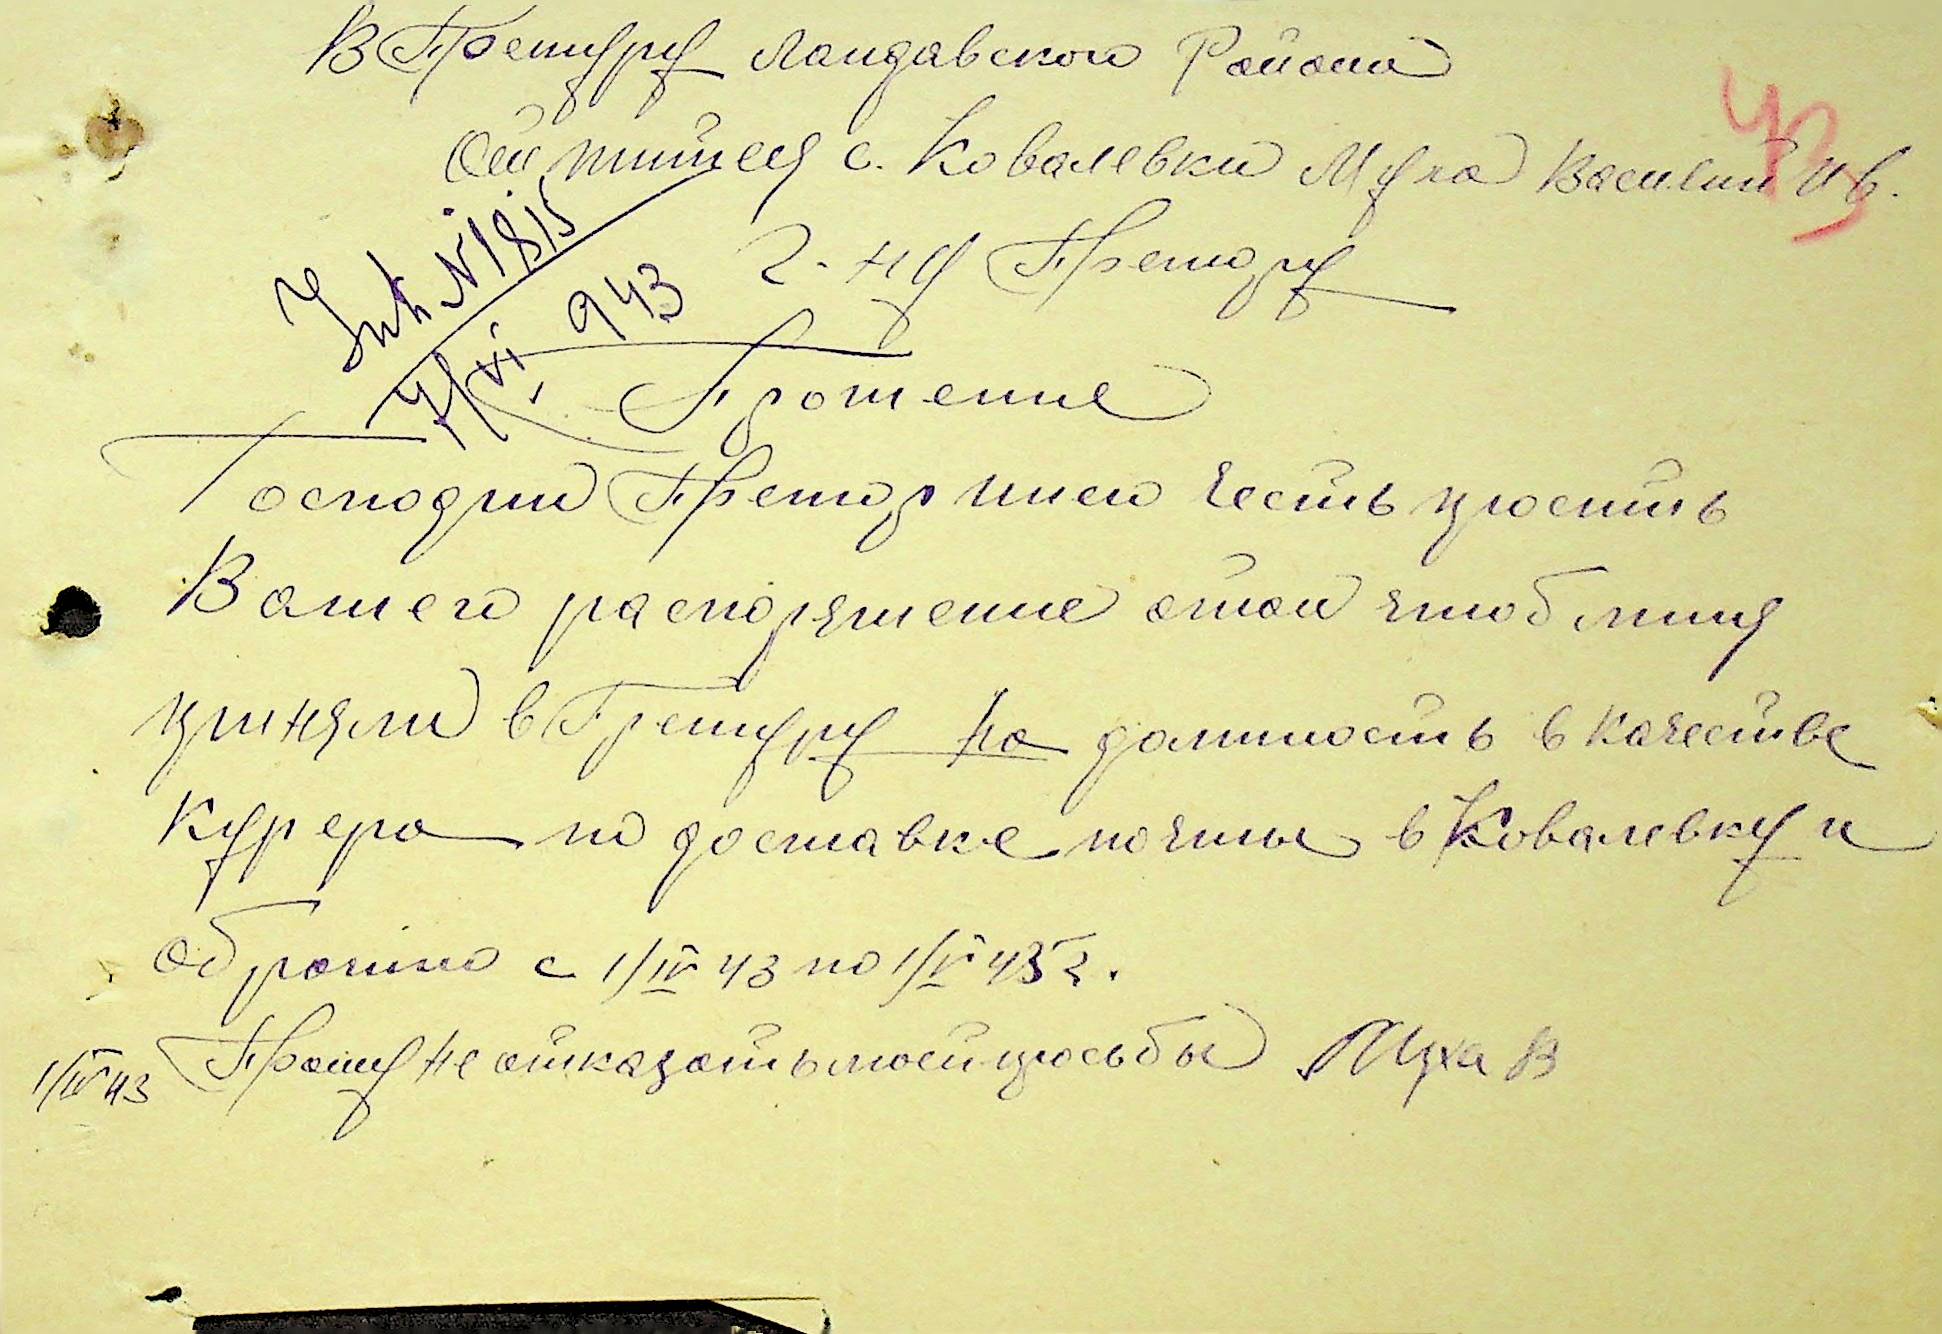 В Претуру Ландавского Района
От жителя с. Ковалевки Муха Василий Ив.
43
Г-ну Претору
Int. № 1815
7/VI 943
Прошение
Господин Претор имею честь просить
Вашего распоряжение о том чтоб меня
приняли в Претуру на должность в качестве
Курера по доставке почты в Ковалевку и
обратно с 1/IV 43 по 1/V 43 г.
Прошу не отказать моей просьбы Муха В
1/IV 43